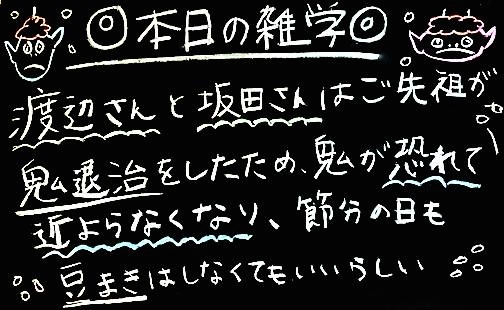 ◎本日の雑学◎
渡辺さんと坂田さんはご先祖が
鬼退治をしたため、鬼が恐れて
近よらなくなり、節分の日も
豆まきはしなくてもいいらしい